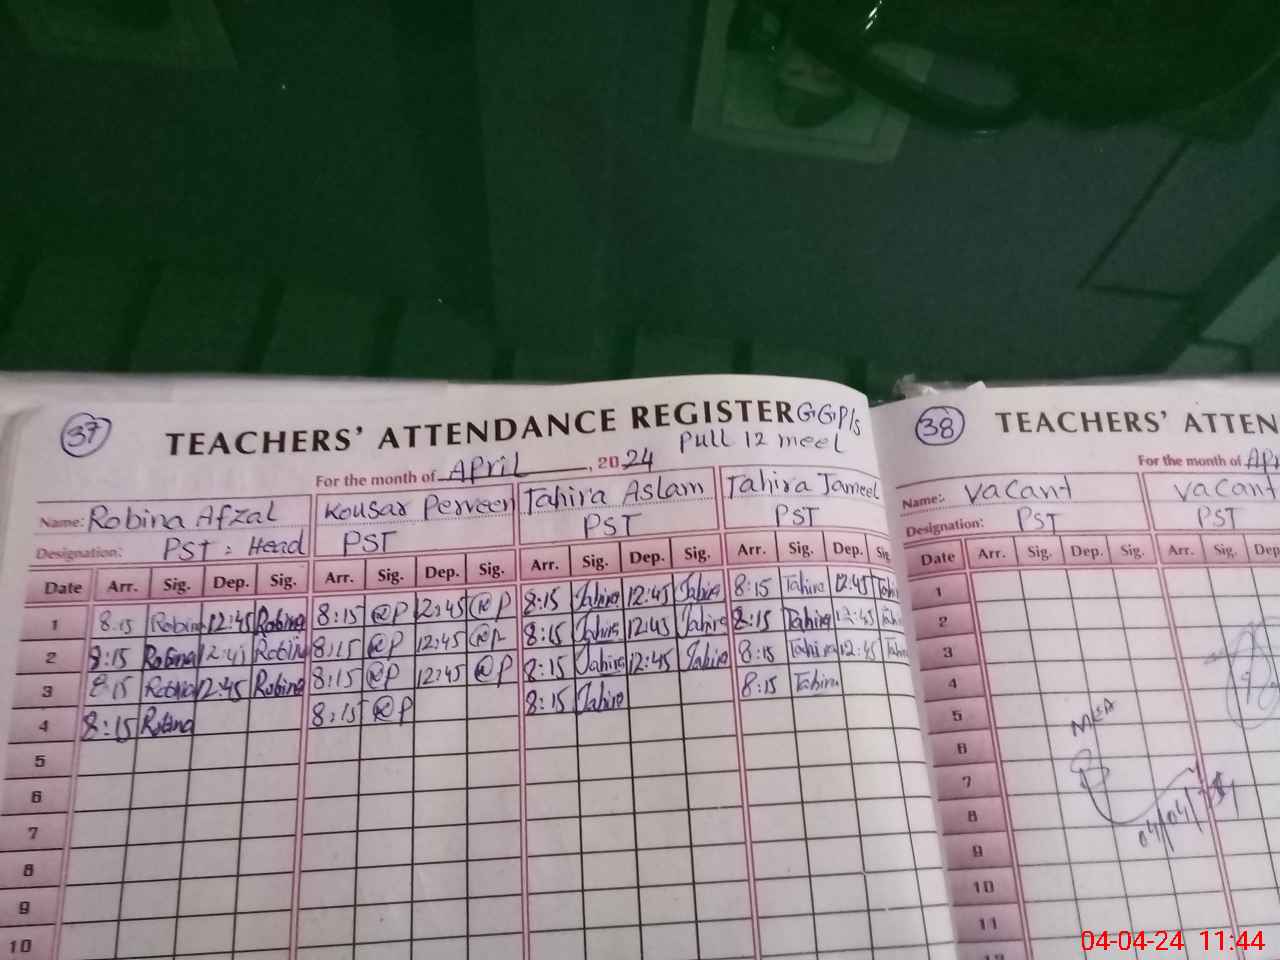 37
TEACHERS' ATTENDANCE REGISTER GGP/S
Pull 12 meel
For the month of April, 2024
Name: Robina Afzal Kousar Perveen Tahira Aslam Tahira Jameel
Designation: PST: Head PST PST PST
Date Arr. Sig. Dep. Sig. Arr. Sig. Dep. Sig. Arr. Sig. Dep. Sig. Arr. Sig. Dep. Sig.
1 8:15 Robina 12:45 Robina 8:15 @P 12:45 @P 8:15 Tahira 12:45 Tahira 8:15 Tahira 12:45 Tahi
2 8:15 Robina 12:45 Robina 8:15 @P 12:45 @P 8:15 Tahira 12:45 Tahira 8:15 Tahira 12:45 Tahi
3 8:15 Robina 12:45 Robina 8:15 @P 12:45 @P 8:15 Tahira 12:45 Tahira 8:15 Tahira 12:45 Tahi
4 8:15 Robina 8:15 @P 8:15 Tahira 8:15 Tahira
5
6
7
8
9
10
38
TEACHERS' ATTEN
For the month of Apr
Name: Vacant Vacant
Designation: PST PST
Date Arr. Sig. Dep. Sig. Arr. Sig. Dep
1
2
3
4
5
6
7
8
9
10
11
12
MEA
04/04/24
04-04-24 11:44